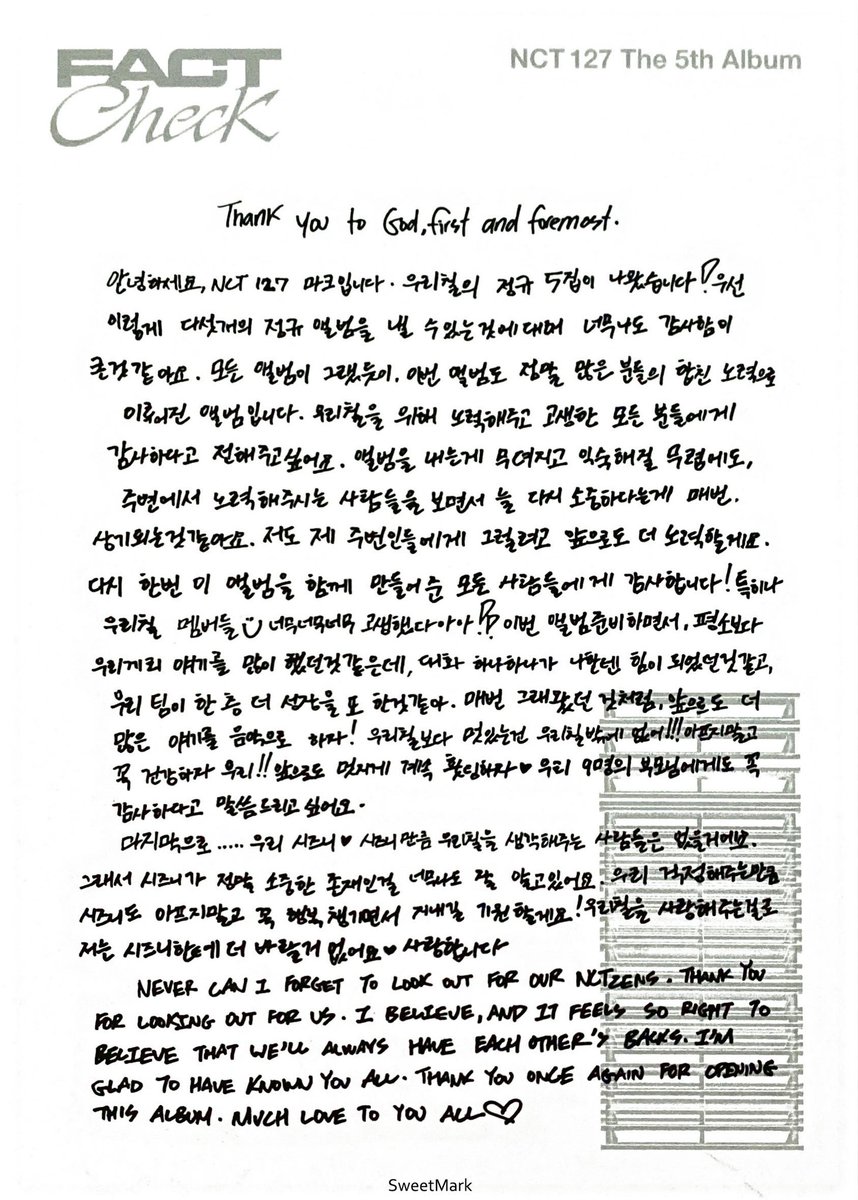 FACT
Check
NCT 127 The 5th Album
Thank you to God, first and foremost.
안녕하세요, NCT 127 마크입니다. 우리칠의 정규 5집이 나왔습니다!? 우선
이렇게 다섯개의 정규 앨범을 낼 수 있는것에 대해 너무나도 감사함이
큰것 같아요. 모든 앨범이 그랬듯이. 이번 앨범도 정말 많은 분들의 합친 노력으로
이뤄어진 앨범입니다. 우리칠을 위해 노력해주고 고생한 모든 분들에게
감사하다고 전해주고싶어요. 앨범을 내는게 무뎌지고 익숙해질 무렵에도,
주변에서 노력해주시는 사람들을 보면서 늘 다시 소중하다는게 매번.
상기되는것같아요. 저도 제 주변인들에게 그럴려고 앞으로도 더 노력할게요.
다시 한번 이 앨범을 함께 만들어 준 모든 사람들에게 감사합니다! 특히나
우리칠 멤버들 너무너무너무 고생했다아아!? 이번 앨범준비하면서, 평소보다
우리끼리 얘기를 많이 했던것같은데, 대화 하나하나가 나한텐 힘이 되었던것같고,
우리 팀이 한 층 더 성장을 또 한것같아. 매번 그래왔던 것처럼, 앞으로도 더
많은 얘기를 음악으로 하자! 우리칠보다 멋있는건 우리칠밖에 없어!!! 아프지말고
꼭 건강하자 우리!! 앞으로도 멋지게 계속 활팅하자♥ 우리 9명의 부모님에게도 꼭
감사하다고 말씀드리고 싶어요.
마지막으로..... 우리 시즈니♥ 시즈니만큼 우리칠을 생각해주는 사람들은 없을거에요.
그래서 시즈니가 정말 소중한 존재인걸 너무나도 잘 알고있어요. 우리 걱정해주는만큼
시즈니도 아프지말고 꼭 행복 챙기면서 지내길 기원할게요! 우리칠을 사랑해주는걸로
저는 시즈니한테 더 바랄거 없어요♥ 사랑합니다
NEVER CAN I FORGET TO LOOK OUT FOR OUR NCTZENS. THANK YOU
FOR LOOKING OUT FOR US. I BELIEVE, AND IT FEELS SO RIGHT TO
BELIEVE THAT WE'LL ALWAYS HAVE EACH OTHER'S BACKS. I'M
GLAD TO HAVE KNOWN YOU ALL. THANK YOU ONCE AGAIN FOR OPENING
THIS ALBUM. MUCH LOVE TO YOU ALL♡
SweetMark